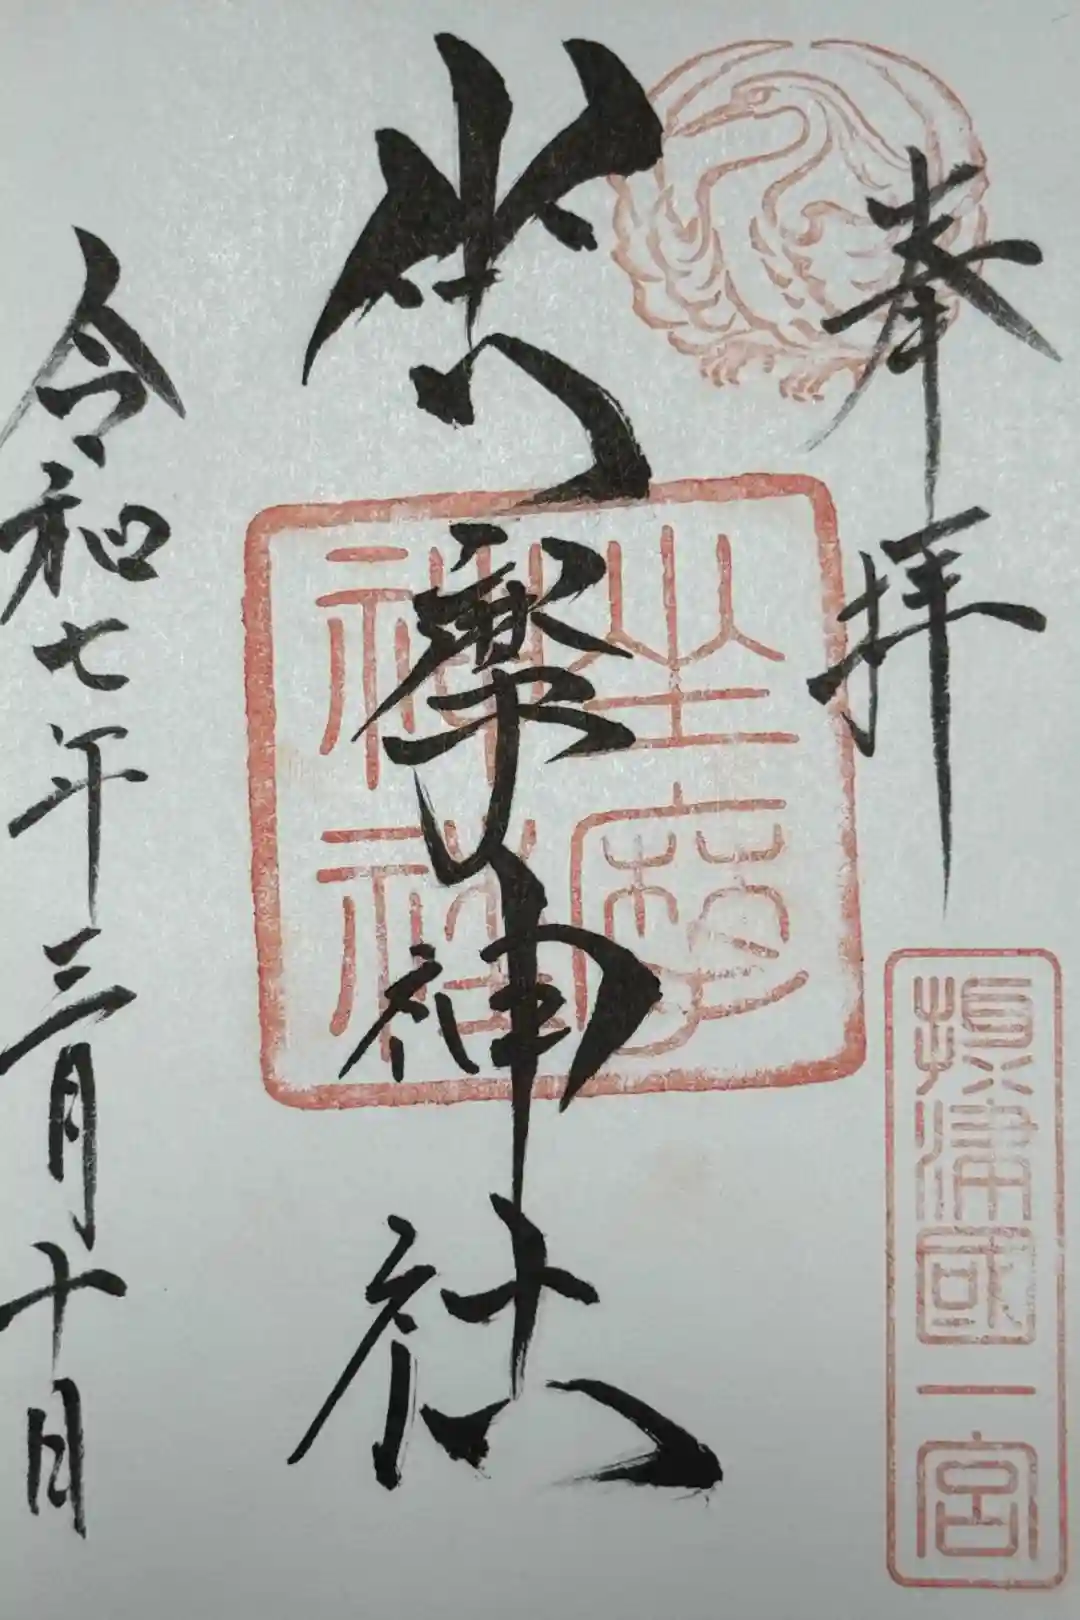 奉拝
攝津國一宮
坐摩神社
坐摩
神社
令和七年三月十日